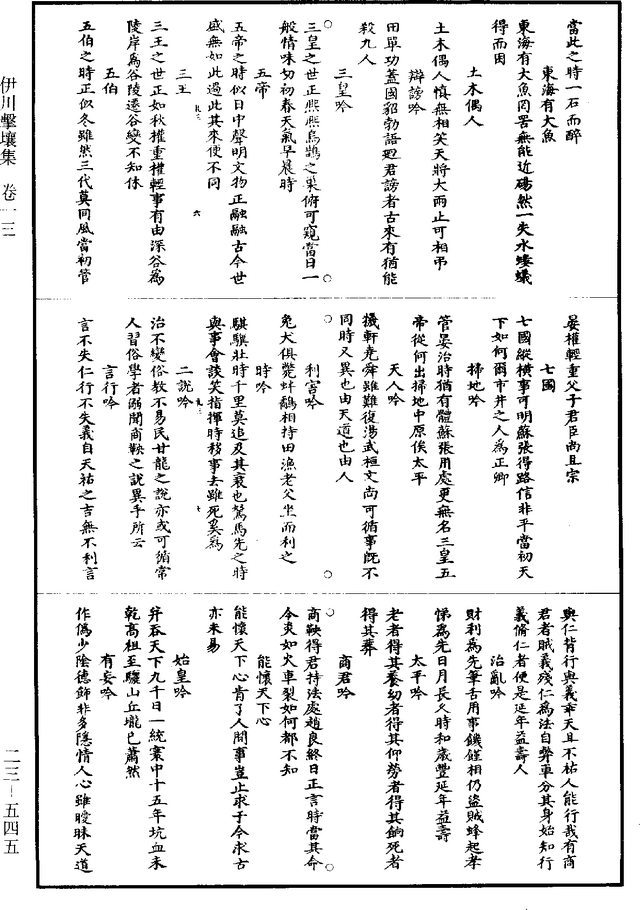 當此之時一石而醉
東海有大魚
東海有大魚罔罟無能近碭然一失水螻蟻
得而因
土木偶人
土木偶人慎無相笑天將大雨止可相弔
辯謗吟
田單功蓋國貂勃語廻君謗者古來有猶能
殺九人
三皇吟
三皇之世正熙熙烏鵲之巢俯可窺當日一
般情味切初春天氣早晨時
五帝
五帝之時似日中聲明文物正融融古今世
盛無如此過此其來便不同
三王
三王之世正如秋權重權輕事有由深谷為
陵岸為谷陵遷谷變不知休
五伯
五伯之時正似冬雖然三代莫同風當初管
晏權輕重父子君臣尚且宗
七國
七國縱橫事可明蘇張得路信非平當初天
下如何爾市井之人為正卿
掃地吟
管晏治時猶有體蘇張用處更無名三皇五
帝從何出掃地中原俟太平
天人吟
羲軒堯舜雖難復湯武桓文尚可循事既不
同時又異也由天道也由人
利害吟
兔犬俱斃蚌鷸相持田漁老父坐而利之
時吟
騏驥壯時千里莫追及其衰也駑馬先之時
與事會談笑指揮時移事去雖死奚為
二說吟
治不變俗教不易民甘龍之說亦或可循常
人習俗學者溺聞商鞅之說異乎所云
言行吟
言不失仁行不失義自天祐之吉無不利言
與仁背行與義乖天且不祐人能行哉有商
君者賊義殘仁為法自弊車分其身始知行
義脩仁者便是延年益壽人
治亂吟
財利為先筆舌用事饑饉相仍盜賊蜂起孝
悌為先日月長久時和歲豐延年益壽
太平吟
老者得其養幼者得其仰勞者得其餉死者
得其葬
商君吟
商鞅得君持法處趙良終日正言時當其命
令炎如火車裂如何都不知
能懷天下心
能懷天下心肯了人間事豈止求于今求古
亦未易
始皇吟
并吞天下九千日一統寰中十五年坑血未
乾高祖至驪山丘壠已蕭然
有妄吟
作偽少陰德飾非多隱情人心雖曖昧天道
伊川擊壤集　卷一三
二三－五四五